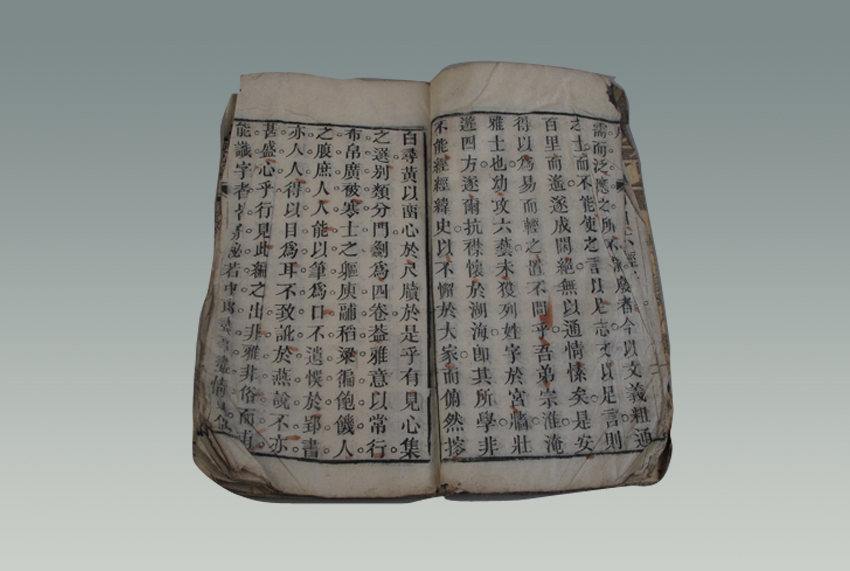 六經
需而泛應之所不常廢者今以文義粗通
之士而不能使之言以足志文以足言則
百里而遙遂成間絕無以通情愫矣是安
得以爲易而輕之置不問乎吾弟宗淮淹
雅士也幼攻六藝未獲列姓字於宮牆壯
遊四方遂爾抗襟懷於湖海卽其所學非
不能經經緯史以不懈於大家而俯然
白尋黃以心於尺牘於是乎有見心集
之選別類分門劃爲四卷葢雅意以常行
布帛廣被寒士之軀庾鬴稻粱徧飽饑人
之腹庶人人能以筆爲口不遺悞於郢書
亦人人得以目爲耳不致訛於燕說不亦
甚盛心乎行見此編之出非雅非俗而有
能識字者